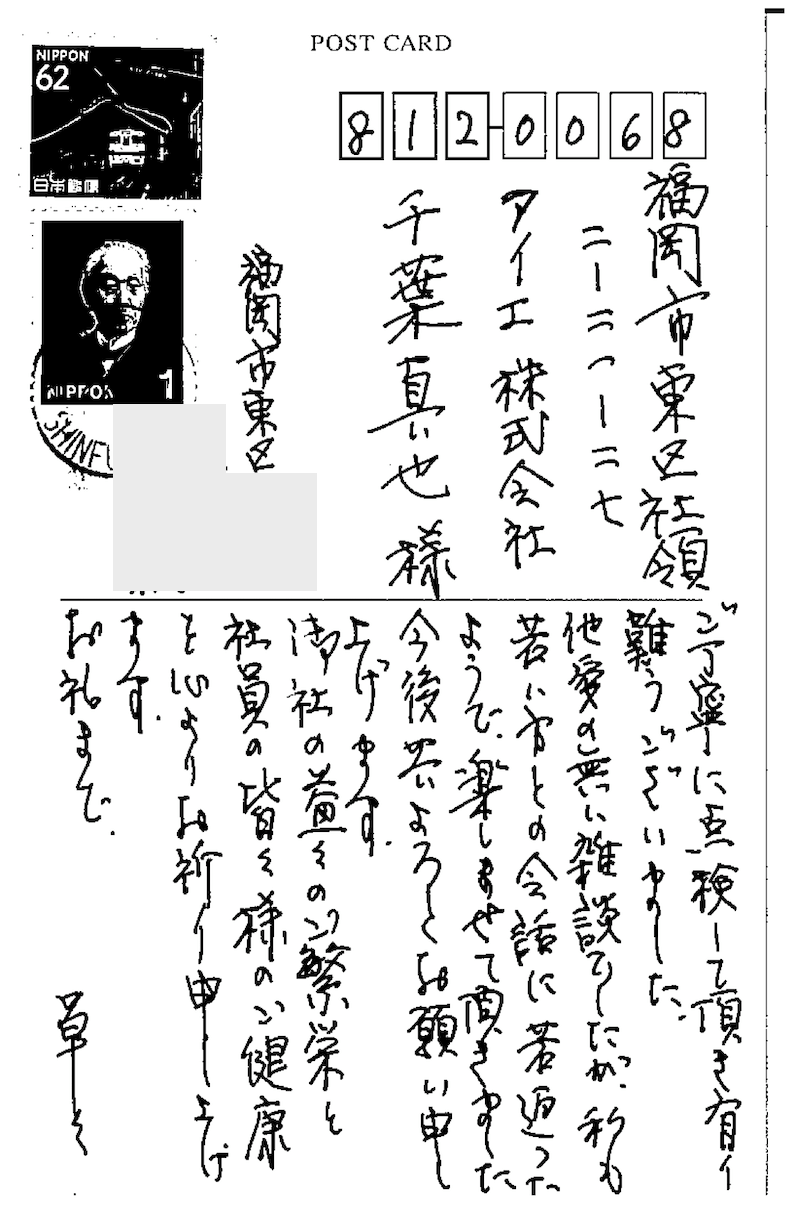 POST CARD
NIPPON
62
日本郵便
NIPPON
1
812-0068
福岡市東区社領
二ー二ー一ー二七
アイエ株式会社
千葉真也様
福岡市東区
ご丁寧に点検して頂き有り
難うございました。
他愛の無い雑談でしたが、私も
若い方との会話に若返った
ようで、楽しませて頂きました
今後共よろしくお願い申し
上げます。
御社の益々のご繁栄と
社員の皆々様のご健康
を心よりお祈り申し上げ
ます。
お礼まで。
草々